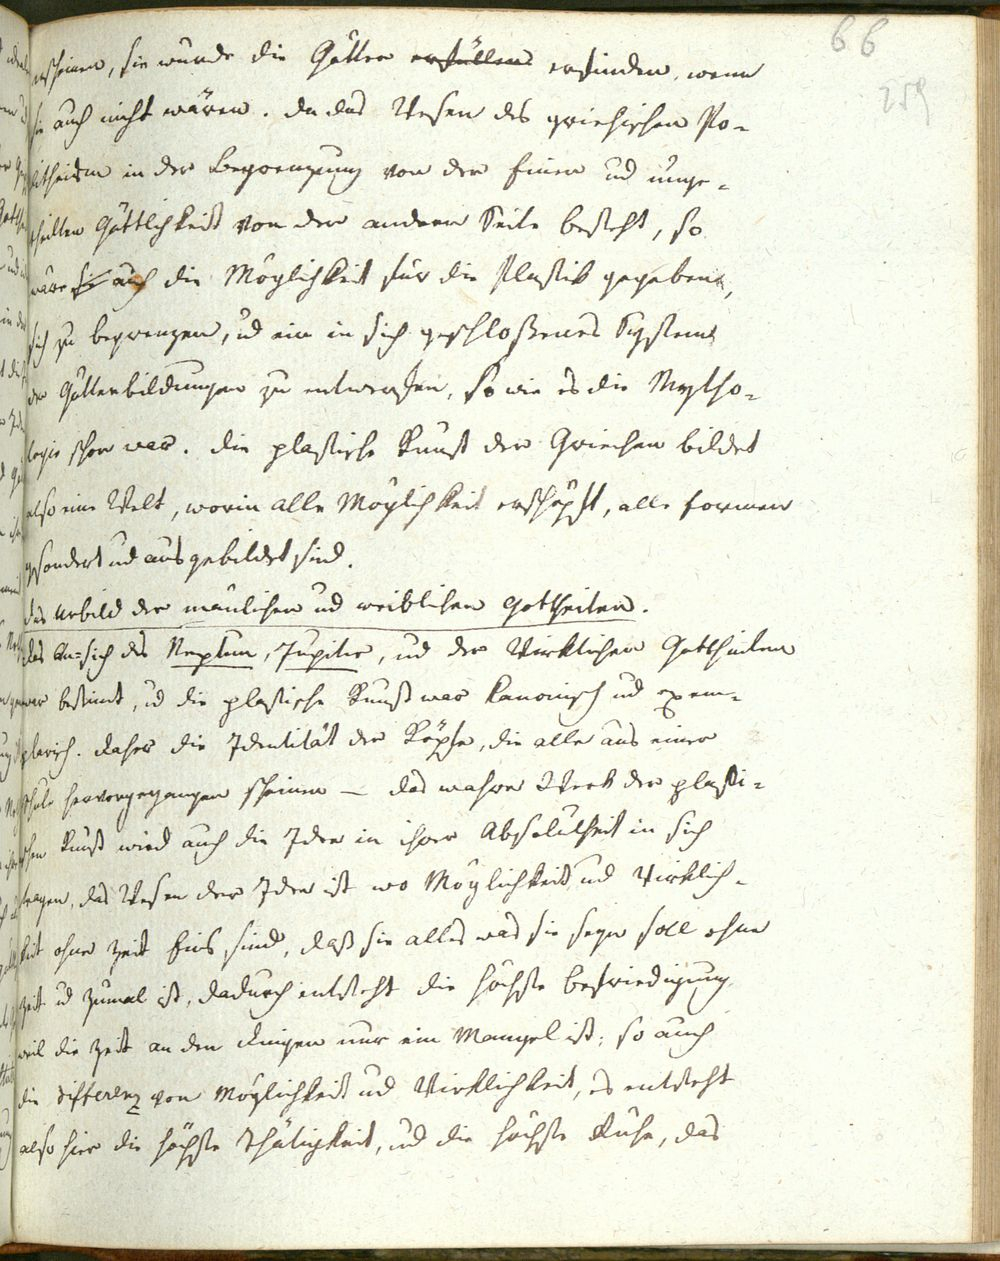 66
259
erscheinen, sie würde die Götter erfüllend erfinden, wenn
sie auch nicht wären. Da das Wesen des griechischen Po-
litheism in der Begrenzung von der Einen ud unge-
theilten Göttlichkeit von der andern Seite besteht, so
wäre sie auch die Möglichkeit für die Plastik gegeben,
sich zu begrenzen, ud ein in sich geschloßenes System
der Götterbildungen zu entwerfen, so wie es die Mytho-
logie schon war. Die plastische Kunst der Griechen bildet
also eine Welt, worin alle Möglichkeit erschöpft, alle Formen
gesondert ud ausgebildet sind.
Das Urbild der mänlichen ud weiblichen Gottheiten.
Das An-sich des Neptun, Jupiter, ud der Wirklichen Gottheiten
war bestimt, ud die plastische Kunst war kanonisch ud exem-
plarisch. Daher die Identität der Köpfe, die alle aus einer
Schule hervorgegangen scheinen — das wahre Werk der plasti-
schen Kunst wird auch die Idee in ihrer Absolutheit in sich
tragen, das Wesen der Idee ist wo Möglichkeit ud Wirklich-
keit ohne Zeit Eins sind, daß sie alles was sie seyn soll ohne
Zeit ud zumal ist, dadurch entsteht die höchste Befriedigung
weil die Zeit an den Dingen nur ein Mangel ist; so auch
die Differenz von Möglichkeit ud Wirklichkeit, es entsteht
also hier die höchste Thätigkeit, ud die höchste Ruhe, das